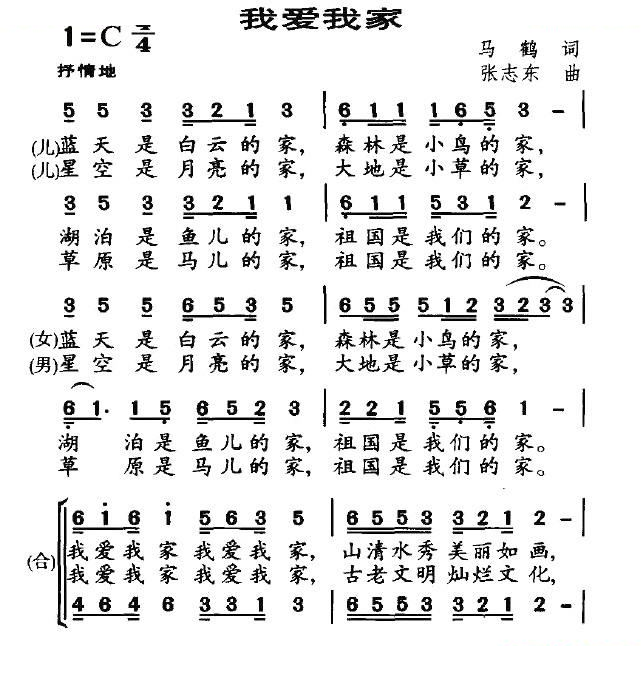 我爱我家
1=C 二/4
马 鹤 词
抒情地
张志东 曲
5 5 3 3 2 1 3 | 6 1 1 1 6 5 3 - |
(儿)蓝天是白云的家，森林是小鸟的家，
(儿)星空是月亮的家，大地是小草的家，
3 5 3 3 2 1 1 | 6 1 1 5 3 1 2 - |
湖泊是鱼儿的家，祖国是我们的家。
草原是马儿的家，祖国是我们的家。
3 5 5 6 5 3 5 | 6 5 5 5 1 2 3 2 3 3 |
(女)蓝天是白云的家，森林是小鸟的家，
(男)星空是月亮的家，大地是小草的家，
6 1· 1 5 6 5 2 3 | 2 2 1 5 5 6 1 - |
湖 泊是鱼儿的家，祖国是我们的家。
草 原是马儿的家，祖国是我们的家。
6 1 6 1 5 6 3 5 | 6 5 5 3 3 2 1 2 - |
(合)我爱我家我爱我家，山清水秀美丽如画，
我爱我家我爱我家，古老文明灿烂文化，
4 6 4 6 3 3 1 3 | 6 5 5 3 3 2 1 2 - |